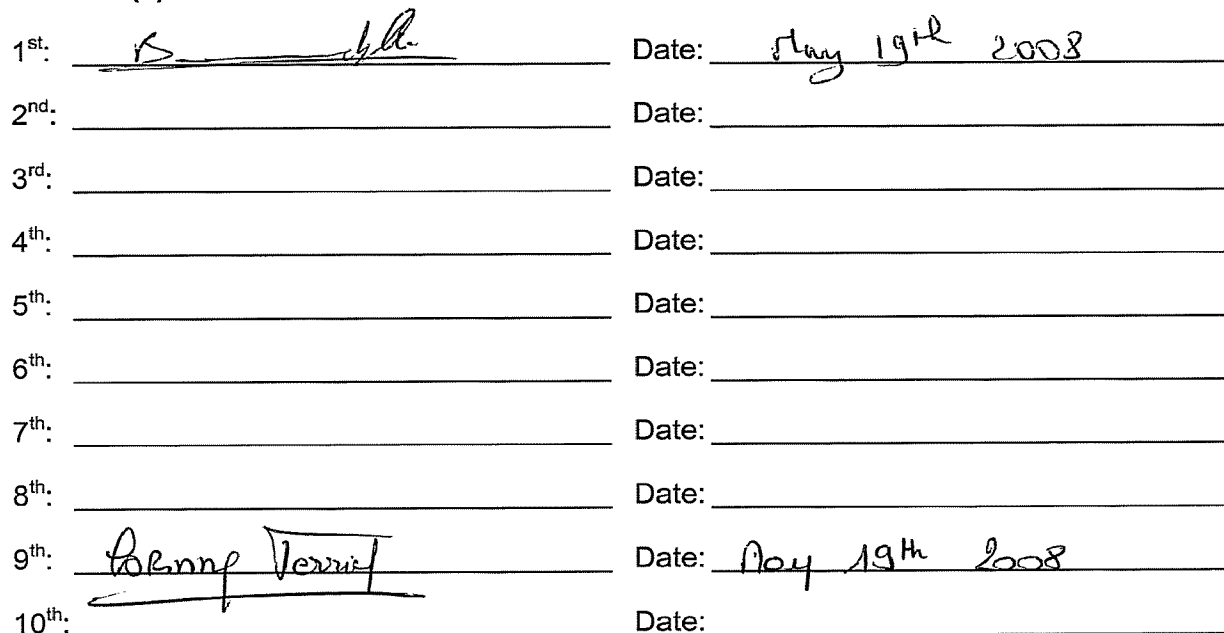 1st: Date: May 19th 2008
2nd: Date:
3rd: Date:
4th: Date:
5th: Date:
6th: Date:
7th: Date:
8th: Date:
9th: Date: May 19th 2008
10th: Date: